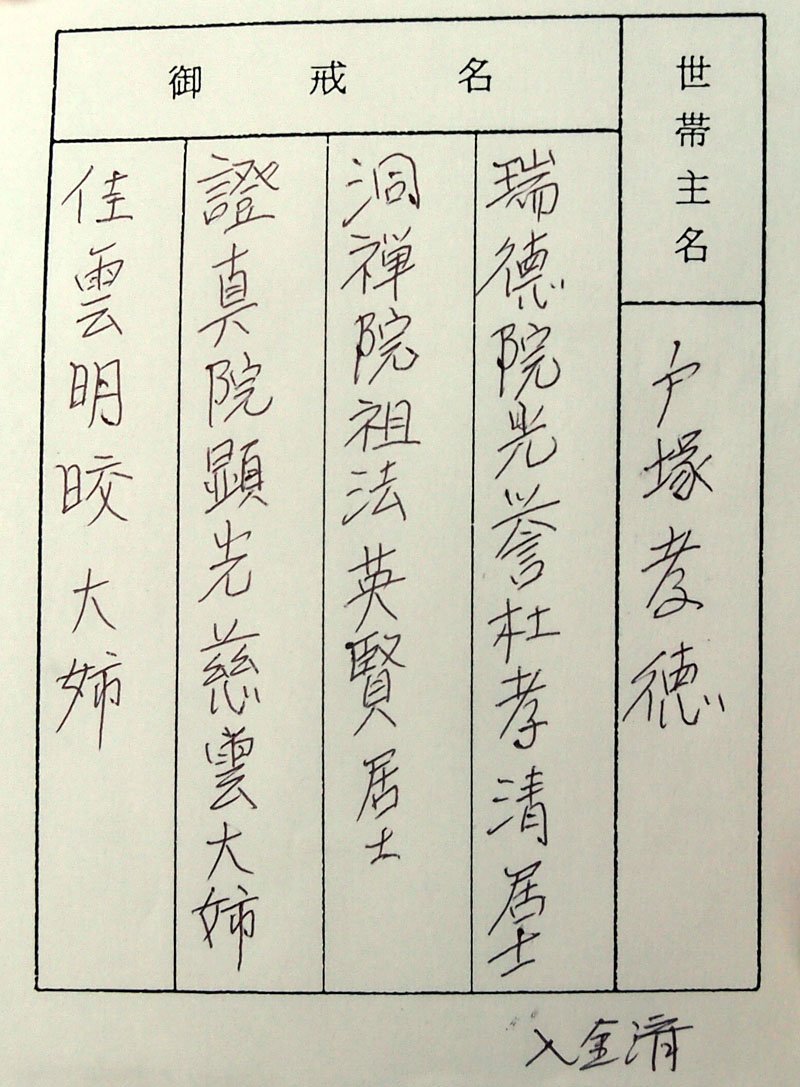 世帯主名
戸塚孝徳
御戒名
瑞徳院光誉杜孝清居士
洞禅院祖法英賢居士
證真院顕光慈雲大姉
佳雲明皎大姉
入金済